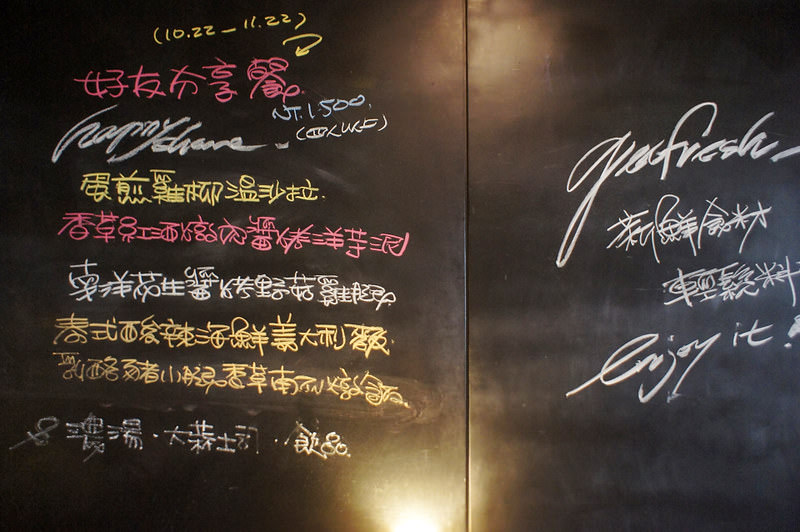 (10.22 – 11.22)
好友分享餐
NT.1.500.
happy share
(四人以上)
蛋煎雞柳溫沙拉.
香草紅酒燉肉醬佐洋芋泥
南洋花生醬烤野菇雞腿
泰式酸辣海鮮義大利麵
乳酪豬小腿香草南瓜燉飯
濃湯.大蒜土司.飲品
gea fresh
新鮮食材
輕鬆料
enjoy it!